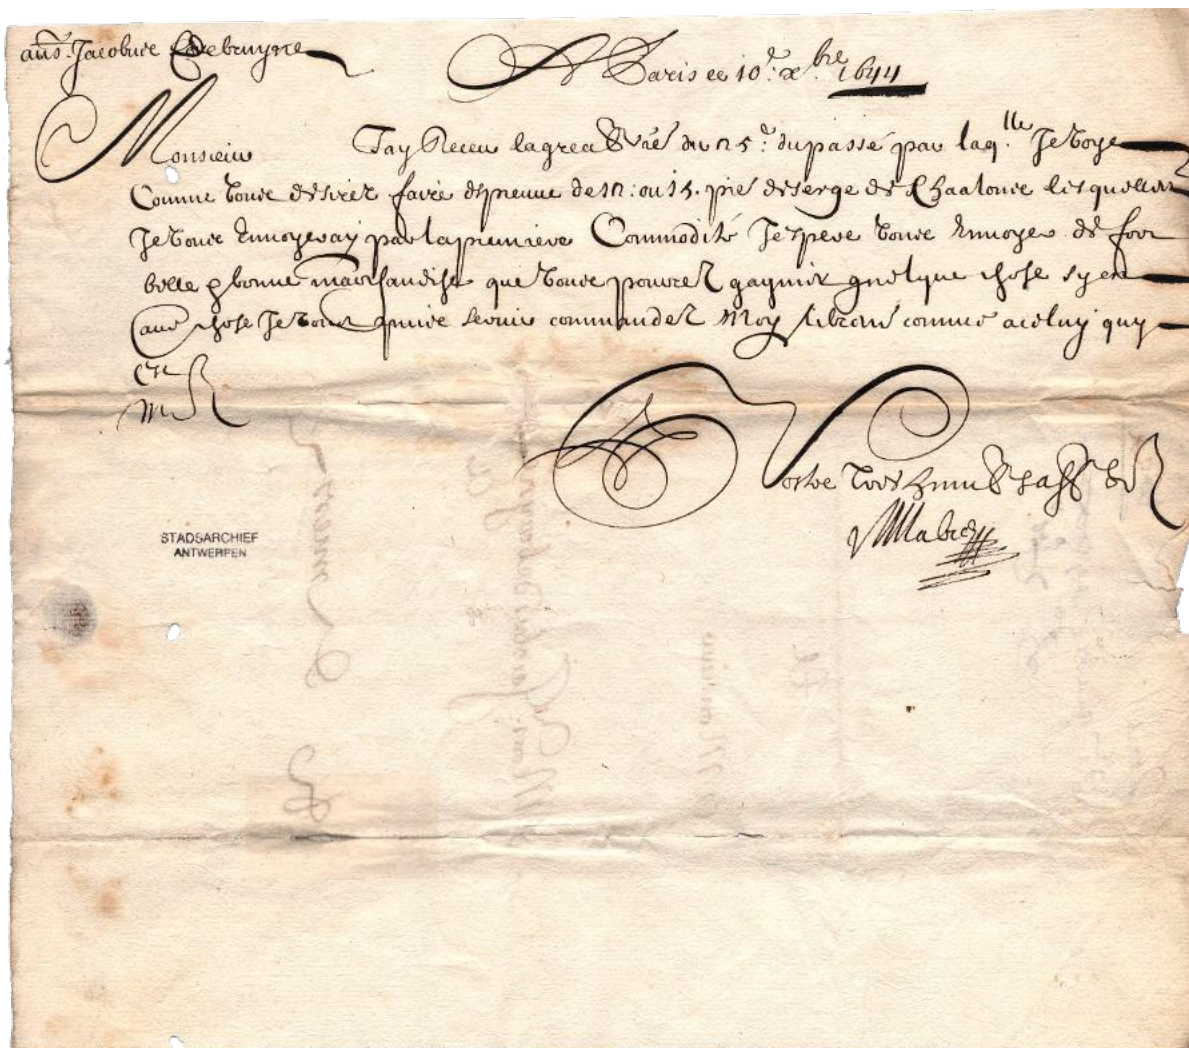 anvs. Jacobus Debruyne
A Paris ce 10e. xbre 1644
Monsieur Jay Receu lagreable vre du 25e. du passé par laqlle Je voye
Comme vous désirez faire espreuve de 12: ou 15. pie de serge de Chaalons lesquelles
Je vous Envoyeray par la premiere Commodité Jespere vous Envoyer de fort
belle & bonne marchandise que vous pourez gagnier quelque chose sy en
aue chose Je vous puis servir commandez Moy librem comme a celuy quy
est
Mr
Vostre tres humble & aff sr
STADSARCHIEF
ANTWERPEN